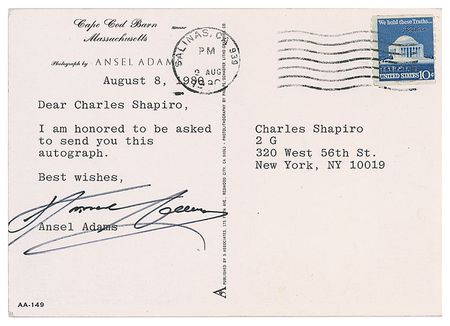 Cape Cod Barn
Massachusetts
Photograph by ANSEL ADAMS
August 8, 1980
Dear Charles Shapiro,
I am honored to be asked
to send you this
autograph.
Best wishes,
Ansel Adams
Ansel Adams
AA-149
SALINAS, CA 939
PM
9 AUG
1980
We hold these Truths...
UNITED STATES 10c
Charles Shapiro
2 G
320 West 56th St.
New York, NY 10019